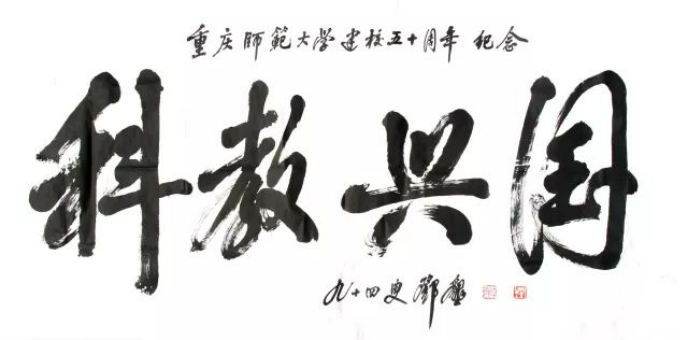 重庆師範大学建校五十周年 纪念
科教兴国
九十四叟鄧墾